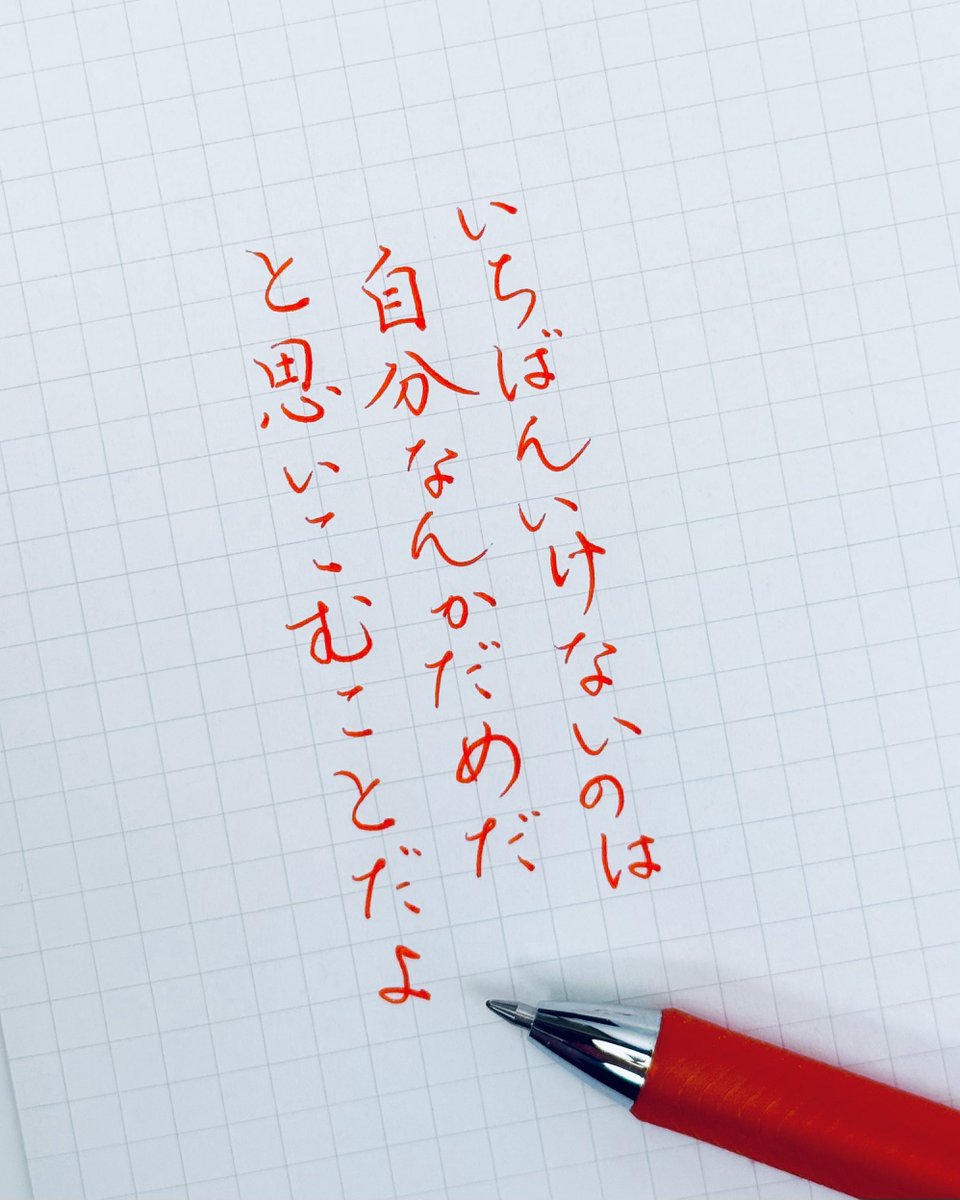 いちばんいけないのは
自分なんかだめだ
と思いこむことだよ